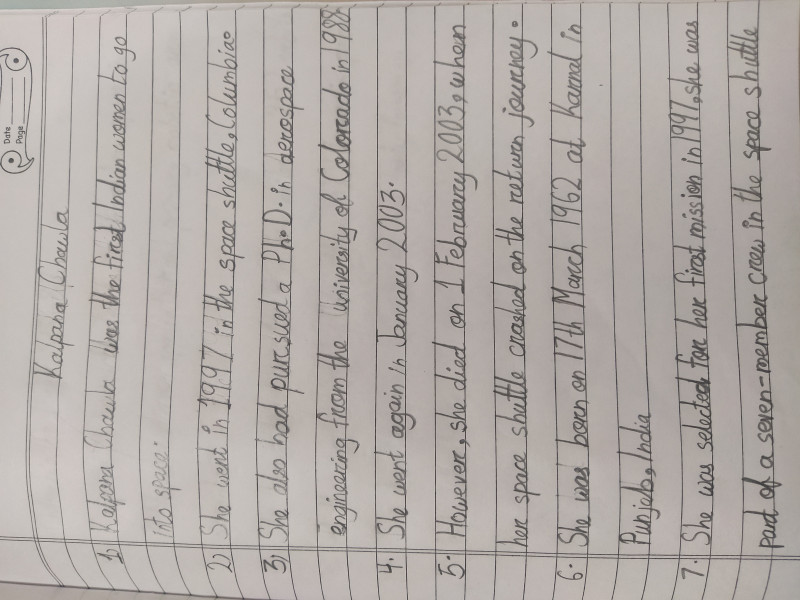 Date
Page
Kalpana Chawla
1) Kalpana Chawla was the first Indian women to go
into space.
2) She went in 1997 in the space shuttle, Columbia.
3) She also had pursued a Ph.D. in aerospace
engineering from the university of Colorado in 1988
4. She went again in January 2003.
5. However, she died on 1 February 2003, when
her space shuttle crashed on the return journey.
6. She was born on 17th March 1962 at Karnal in
Punjab, India
7. She was selected for her first mission in 1997, she was
part of a seven-member crew in the space shuttle